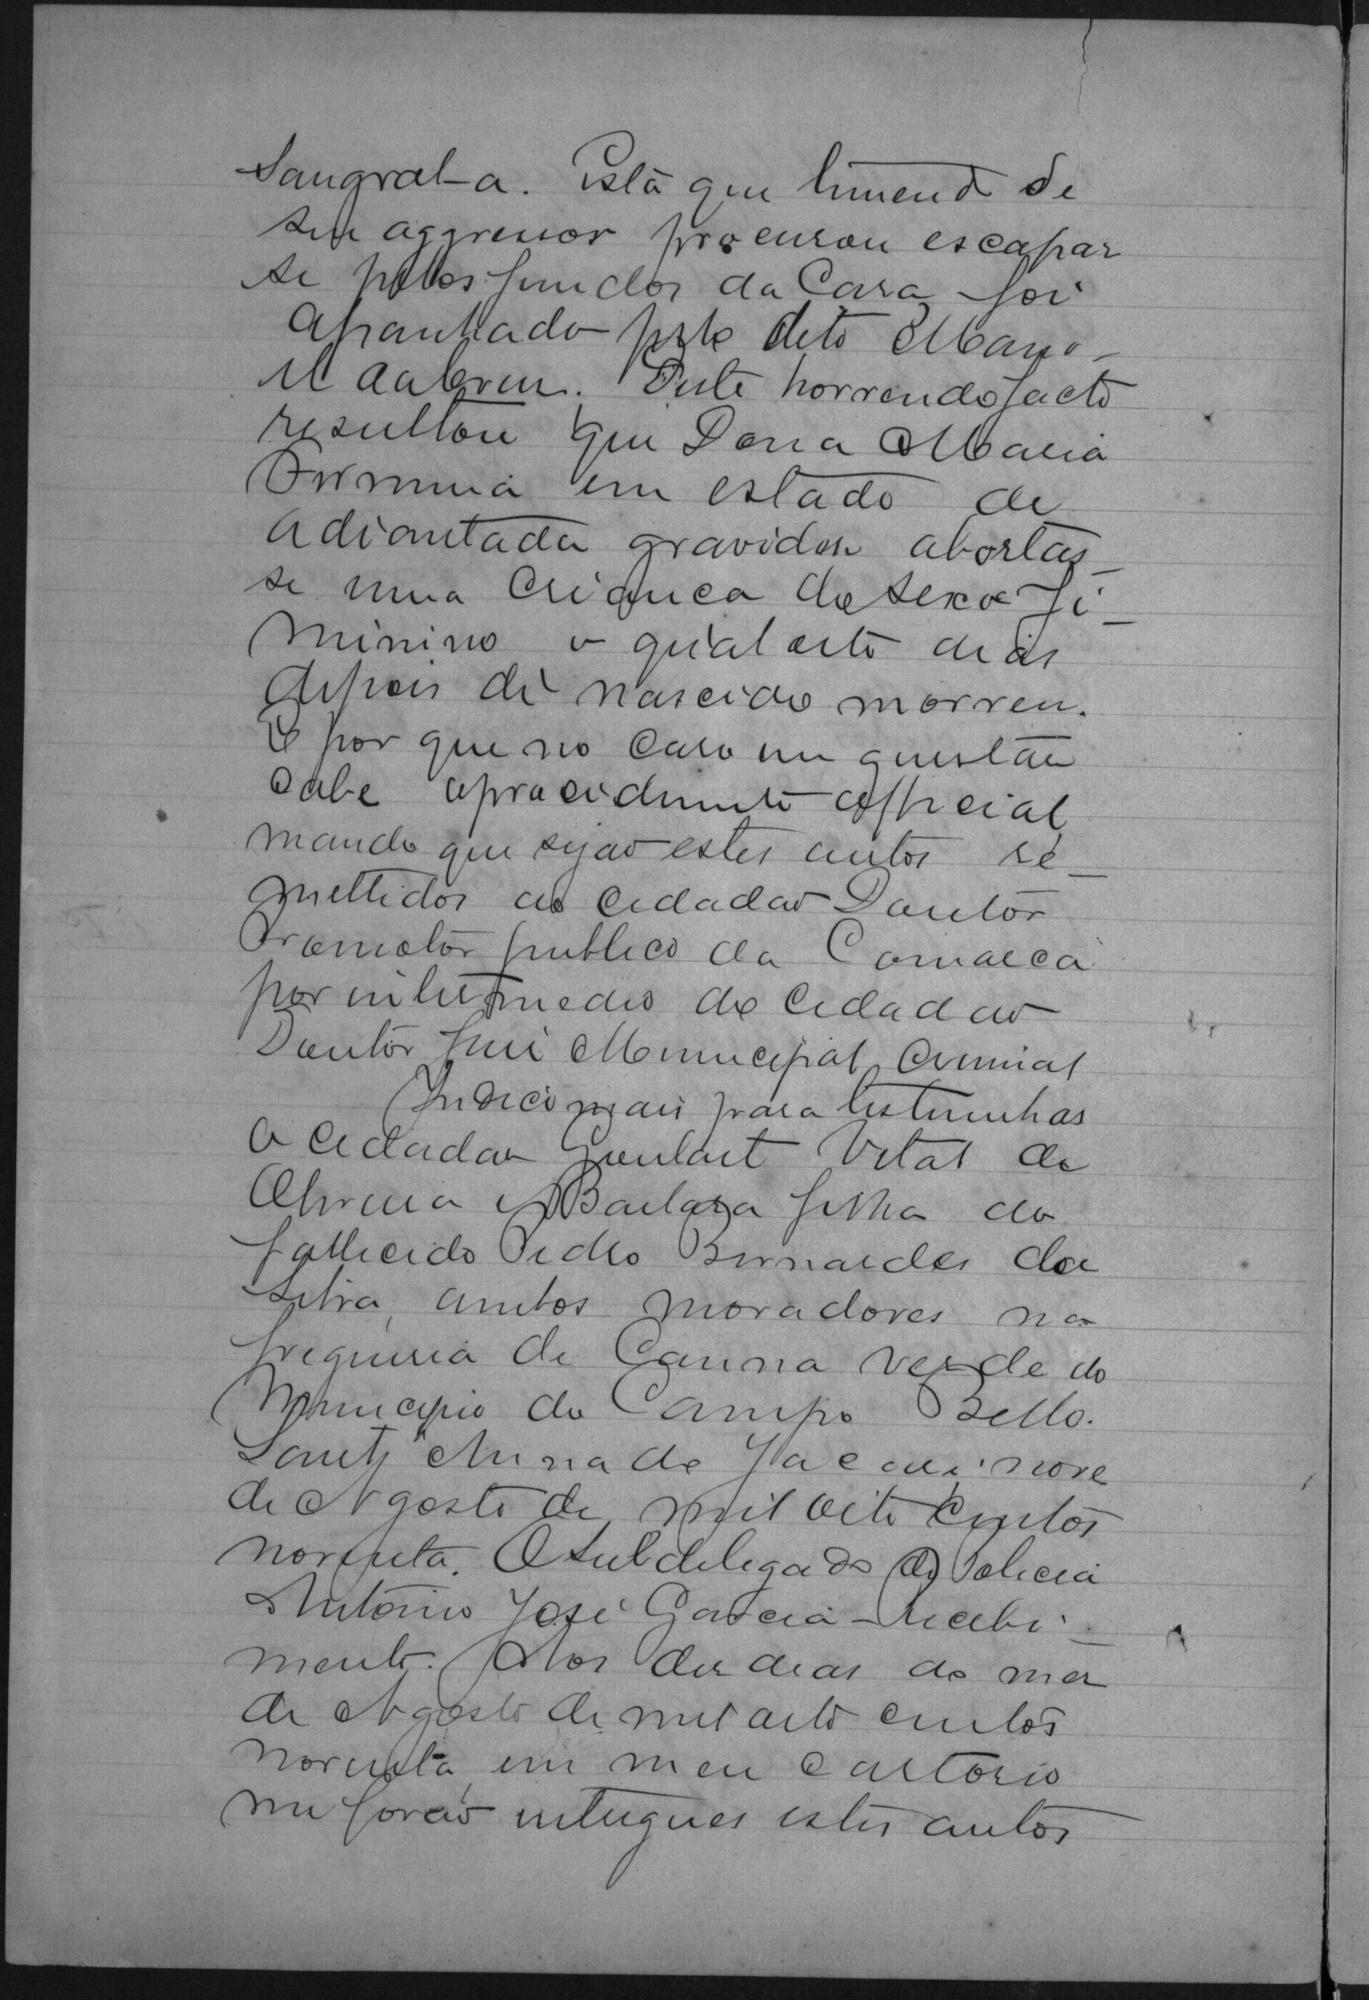 Sangral-a. Esta que temendo de
seu aggressor procurou escapar
se pelos fundos da Casa foi
apanhado pelo dito Mano-
el d'Abreu. Deste horrendo facto
resultou que Dona Maria
Firmina em estado de
adiantada gravidez abortas-
se uma criança do sexo fi-
minino o qual oito dias
depois de nascido morreu.
E por que no caso em questão
cabe aprocedimento official
mando que sejão estes autos re-
mettidos ao cidadão Doutor
Promotor publico da Comarca
por intermedio do Cidadão
Doutor Juiz Municipal, Criminal
Indico mais para testimunhas
o cidadão Goulart Vital de
Oliveira e Barbara filha do
fallecido Pedro Bernardes da
Silva, ambos moradores na
freguesia de Canna verde do
Municipio do Campo Bello.
Santa Anna do Jacaré nove
de Agosto de mil oito centos
noventa. O Subdelegado de Policia
Antonio José Garcia - Recebi-
mento. Aos dez dias do mez
de Agosto de mil oito centos
noventa, em meu cartorio
me forão entregues estes autos